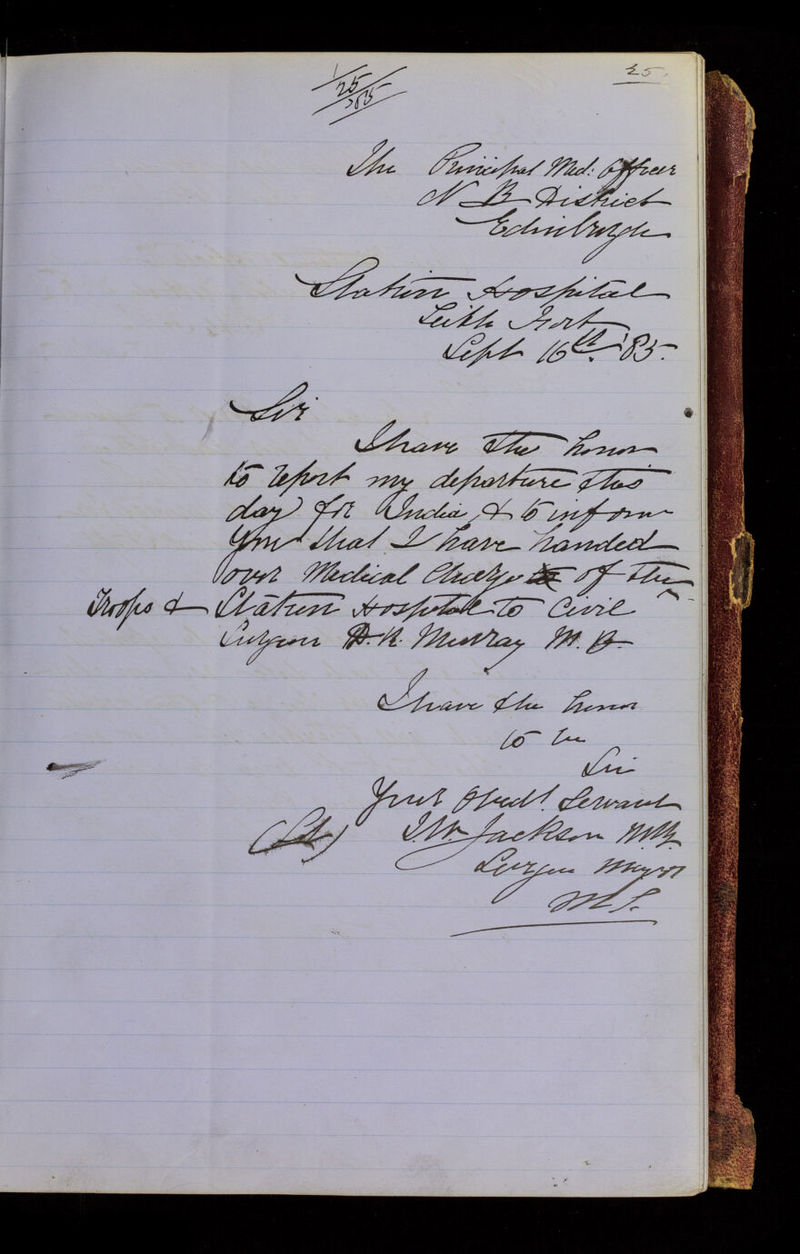 25
1/25/85
The Principal Med: Officer
N B District
Edinburgh
Station Hospital
Leith Fort
Sept 16th '85.
Sir
I have the honor
to report my departure this
day for India, & to inform
you that I have handed
over Medical Charge of the
Troops & Station Hospital to Civil
Surgeon D. R. Murray M. B.
I have the honor
to be
Sir
Your Obedt. Servant
(Sd) J.W. Jackson
Surgeon Major
M.S.